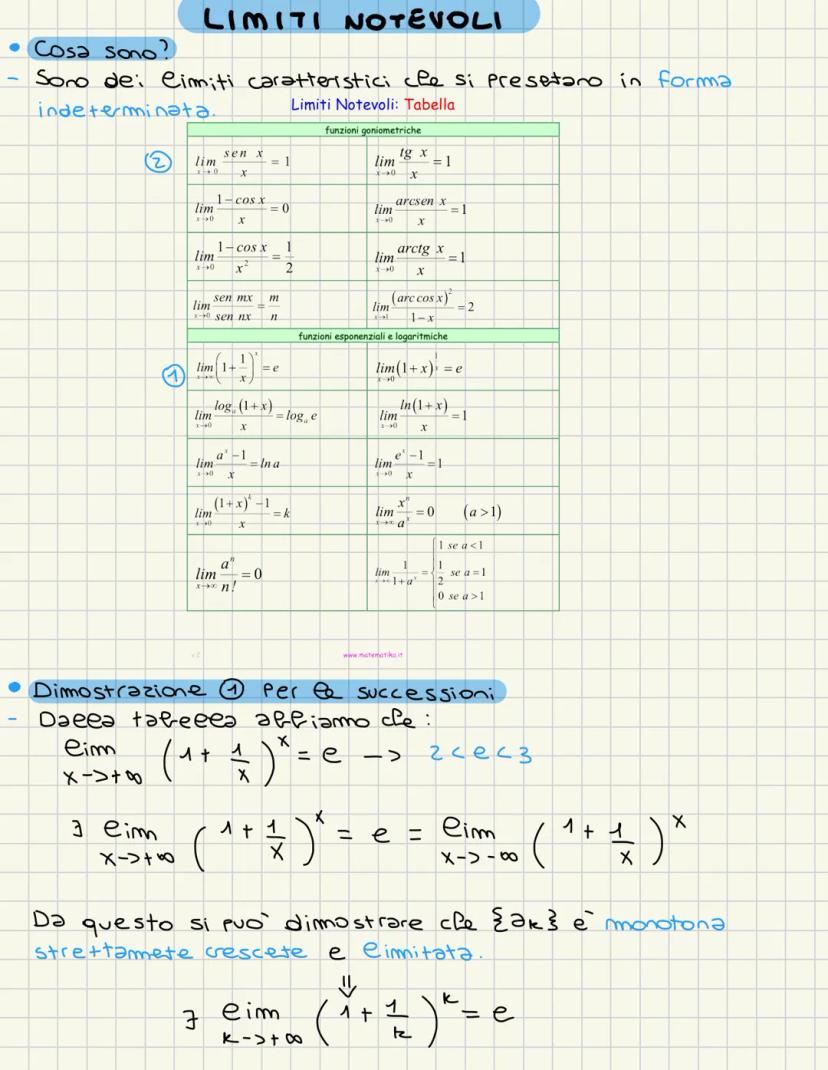 LIMITI NOTEVOLI
• Cosa sono?
- Sono dei limiti caratteristici che si presetano in forma
indeterminata.
Limiti Notevoli: Tabella
funzioni goniometriche
② lim x→0 sen x / x = 1    lim x→0 tg x / x = 1
lim x→0 (1 − cos x) / x = 0    lim x→0 arcsen x / x = 1
lim x→0 (1 − cos x) / x² = 1/2    lim x→0 arctg x / x = 1
lim x→0 sen mx / sen nx = m/n    lim x→1 (arc cos x)² / (1 − x) = 2
funzioni esponenziali e logaritmiche
① lim x→∞ (1 + 1/x)^x = e    lim x→0 (1 + x)^(1/x) = e
lim x→0 log_a (1 + x) / x = log_a e    lim x→0 ln(1 + x) / x = 1
lim x→0 (a^x − 1) / x = ln a    lim x→0 (e^x − 1) / x = 1
lim x→0 ((1 + x)^k − 1) / x = k    lim x→∞ x^n / a^x = 0 (a > 1)
lim x→∞ a^n / n! = 0    lim x→∞ 1 / (1 + a^x) = { 1 se a < 1
1/2 se a = 1
0 se a > 1
v 2
www.matematika.it
• Dimostrazione ① per le successioni
- Dalla tabella abbiamo che :
lim x->+∞ (1 + 1/x)^x = e -> 2<e<3
∃ lim x->+∞ (1 + 1/x)^x = e = lim x->-∞ (1 + 1/x)^x
Da questo si può dimostrare che {ak} è monotona
strettamete crescete e limitata.
⇓
∃ lim k->+∞ (1 + 1/k)^k = e